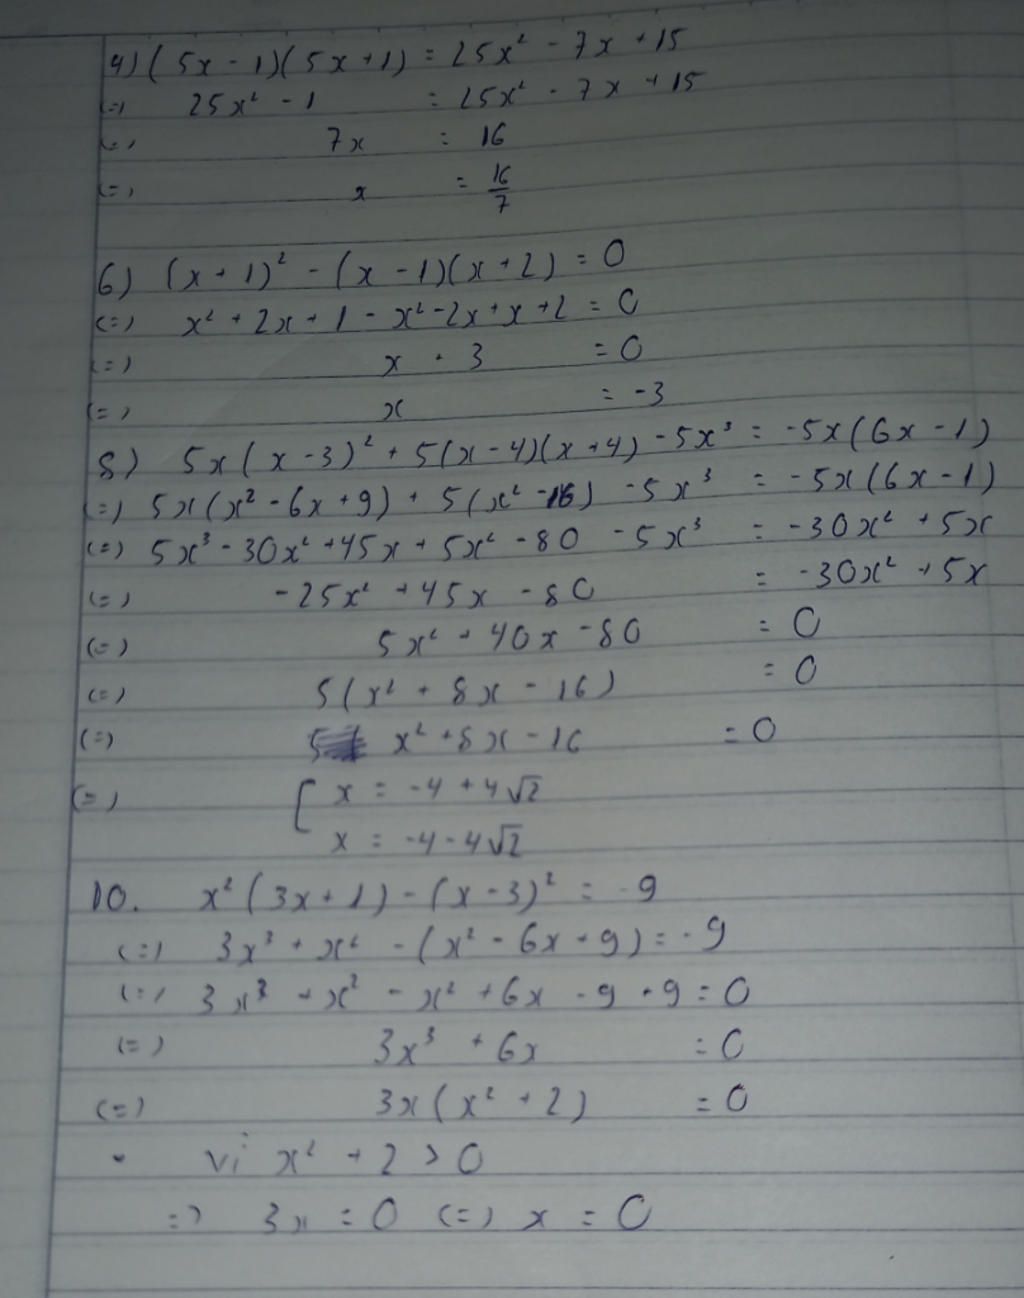 4) (5x - 1)(5x + 1) = 25x² - 7x + 15
(=) 25x² - 1 = 25x² - 7x + 15
(=) 7x = 16
(=) x = 16/7
6) (x + 1)² - (x - 1)(x + 2) = 0
(=) x² + 2x + 1 - x² - 2x + x + 2 = 0
(=) x + 3 = 0
(=) x = -3
8) 5x(x - 3)² + 5(x - 4)(x + 4) - 5x³ = -5x(6x - 1)
(=) 5x(x² - 6x + 9) + 5(x² - 16) - 5x³ = -5x(6x - 1)
(=) 5x³ - 30x² + 45x + 5x² - 80 - 5x³ = -30x² + 5x
(=) -25x² + 45x - 80 = -30x² + 5x
(=) 5x² + 40x - 80 = 0
(=) 5(x² + 8x - 16) = 0
(=) x² + 8x - 16 = 0
(=) [ x = -4 + 4√2
x = -4 - 4√2
10. x²(3x + 1) - (x - 3)² = -9
(=) 3x³ + x² - (x² - 6x + 9) = -9
(=) 3x³ + x² - x² + 6x - 9 + 9 = 0
(=) 3x³ + 6x = 0
(=) 3x(x² + 2) = 0
vì x² + 2 > 0
=> 3x = 0 (=) x = 0